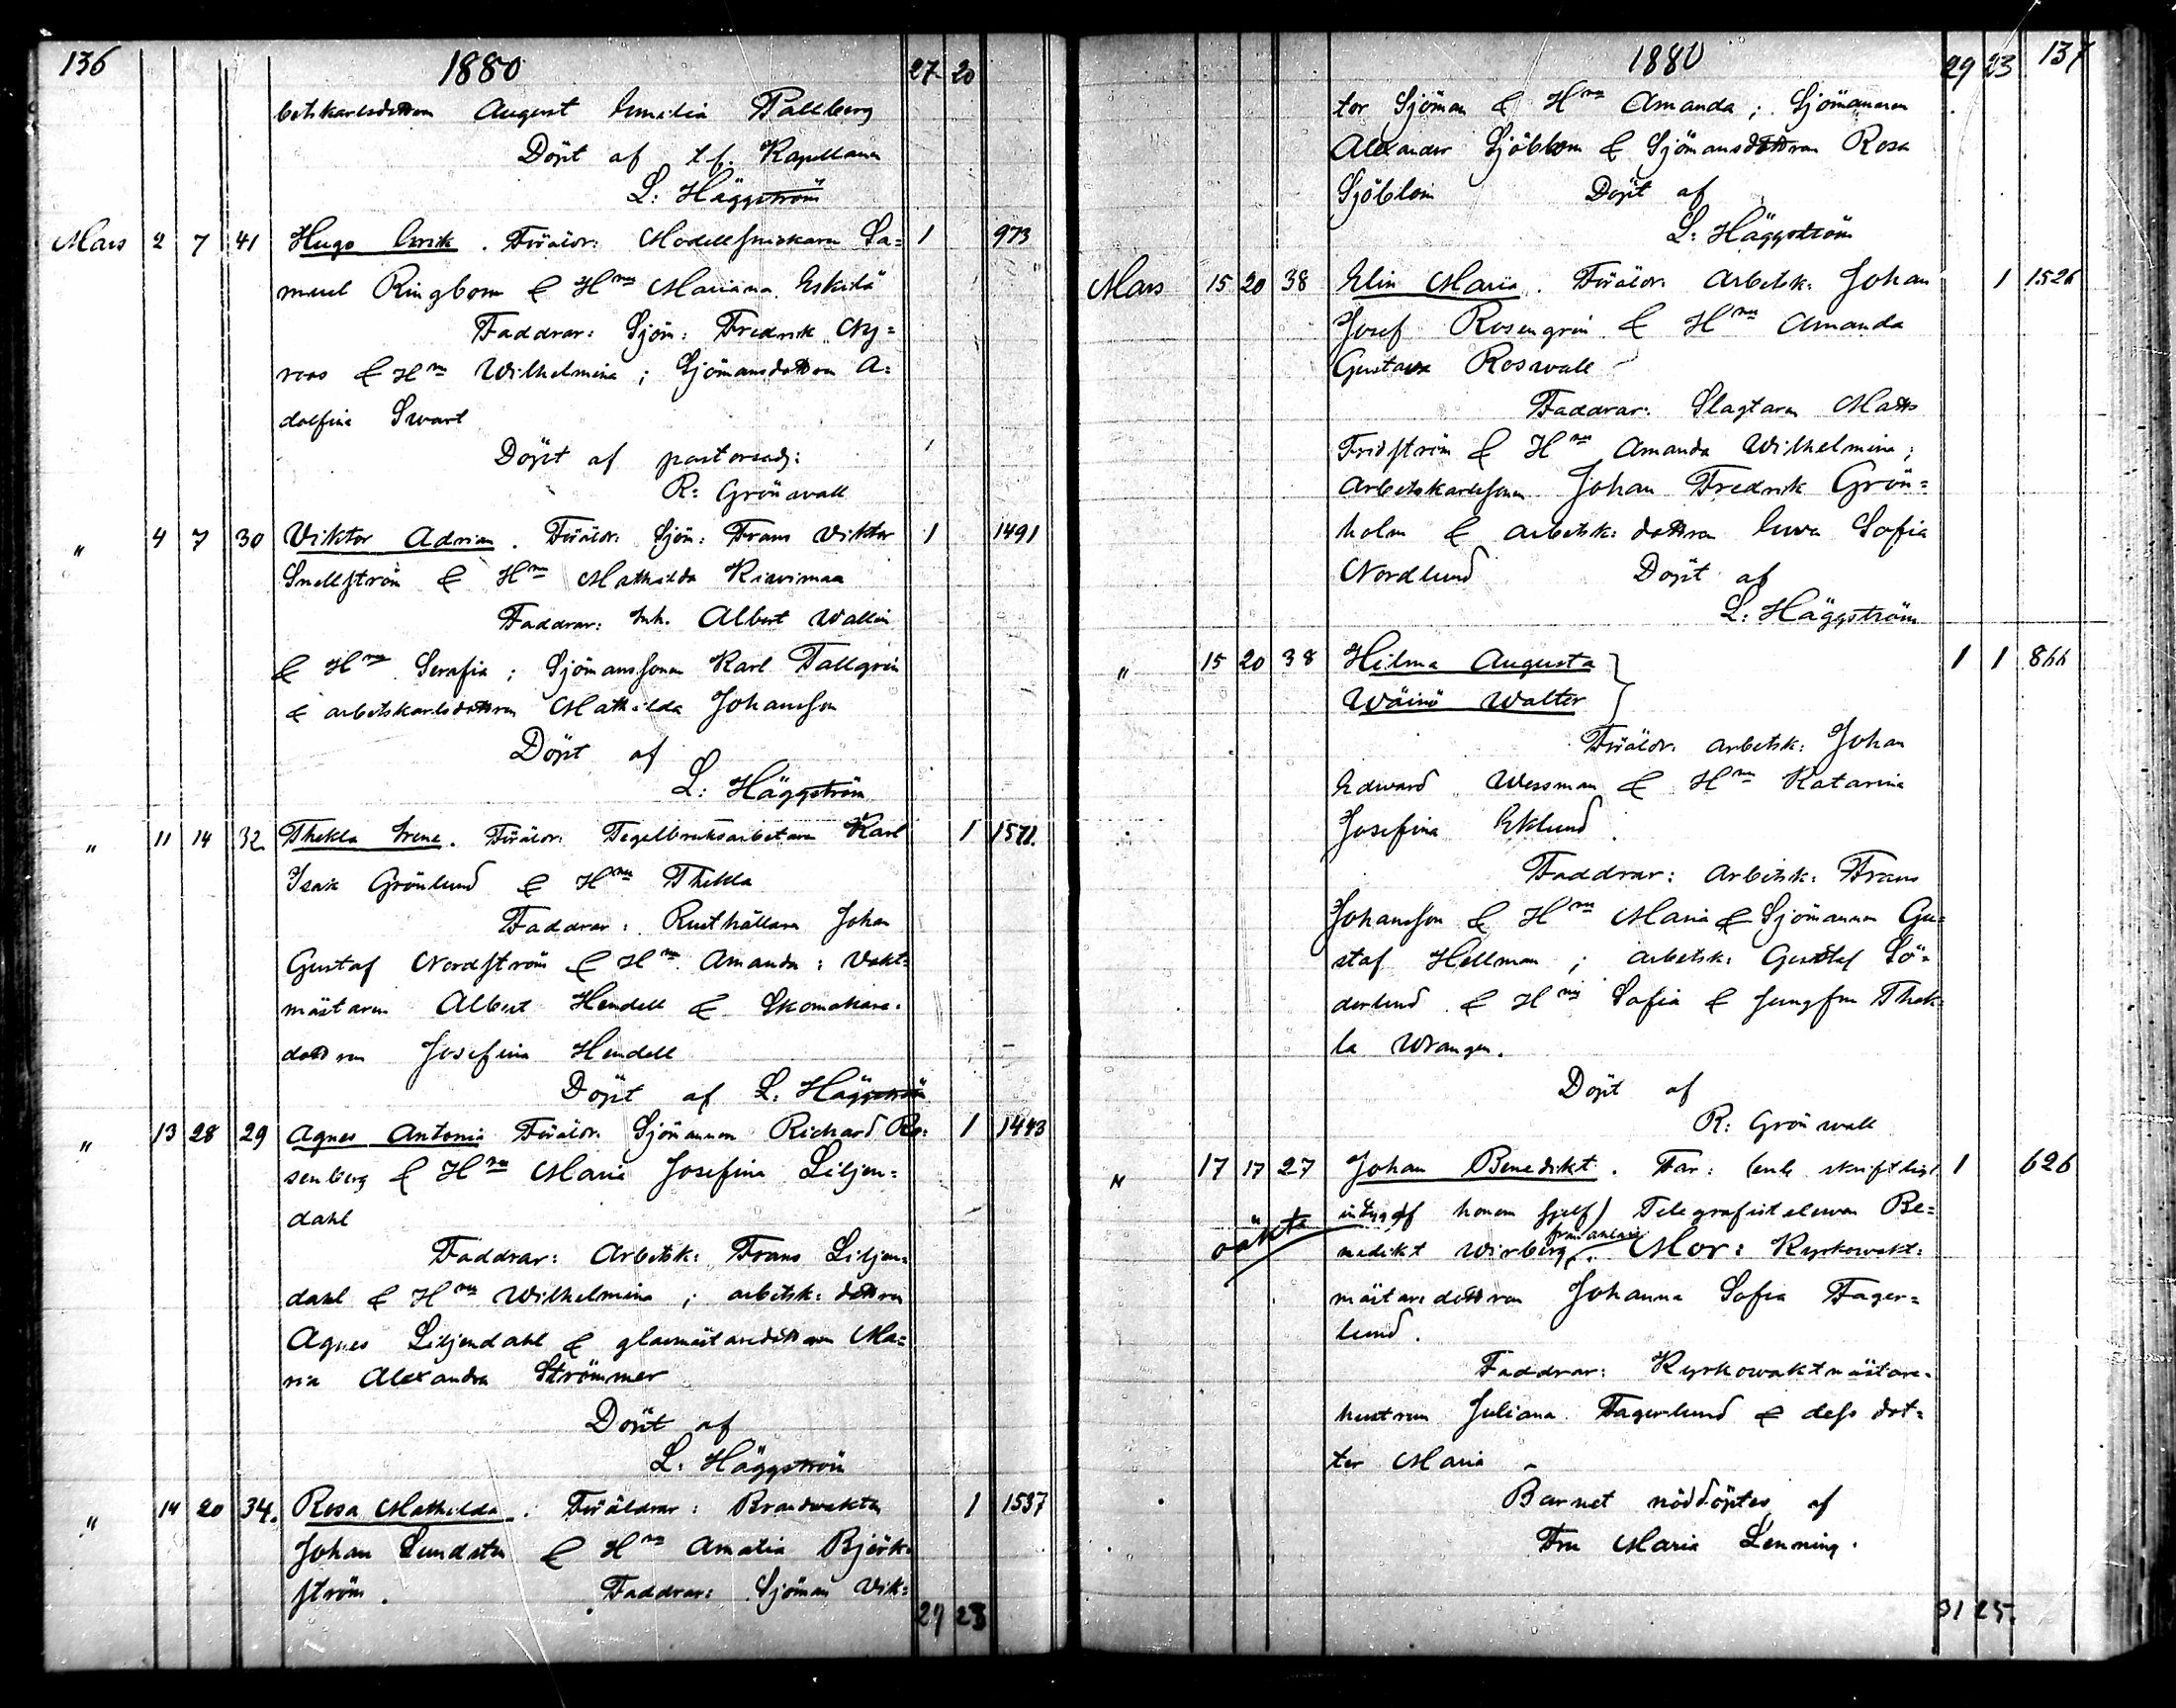 136 1880 27 20
betskarlsdottren August Emilia Pallberg
Döpt af t.f. Kapellanen
L: Häggström
Mars 2 7 41 Hugo Erik. Föräldr: Modellsnickaren Sa= 1 973
muel Ringbom & Hru Mariana Eskilä
Faddrar: Sjöm: Fredrik Ny=
roos & Hru Wilhelmina; Sjömansdottren A=
dolfina Swart
Döpt af pastorsadj:
R: Grönwall
" 4 7 30 Viktor Adrian. Föräldr: Sjöm: Frans Viktor 1 1491
Snellström & Hru Mathilda Kiwimaa
Faddrar: Inh. Albert Wallin
& Hru Serafia; Sjömanssonen Karl Tallgrén
& arbetskarlsdottren Mathilda Johansson
Döpt af
L: Häggström
" 11 14 32 Thekla Irene. Föräldr: Tegelbruksarbetaren Karl 1 1571.
Isak Grönlund & Hru Thekla
Faddrar: Rusthållaren Johan
Gustaf Nordström & Hru Amanda; Vakt=
mästaren Albert Hendell & Skomakare=
dottren Josefina Hendell
Döpt af L: Häggström
" 13 28 29 Agnes Antonia Föräldr: Sjömannen Richard Ro= 1 1443
senberg & Hru Maria Josefina Liljen=
dahl
Faddrar: Arbetsk: Frans Liljen=
dahl & Hru Wilhelmina; arbetsk: dottren
Agnes Liljendahl & glasmästaredottren Ma=
ria Alexandra Strömmer
Döpt af
L: Häggström
" 14 20 34. Rosa Mathilda. Föräldrar: Brandvakten 1 1537
Johan Lundsten & Hru Amalia Björk=
ström. Faddrar: Sjöman Vik=
29 23
1880 29 23 137
tor Sjöman & Hru Amanda; Sjömannen
Alexander Sjöblom & Sjömansdottren Rosa
Sjöblom Döpt af
L: Häggström
Mars 15 20 38 Elin Maria. Föräldr: Arbetsk: Johan 1 1526
Josef Rosengrén & Hru Amanda
Gustava Roswall
Faddrar: Slagtaren Matts
Fridström & Hru Amanda Wilhelmina;
Arbetskarlssonen Johan Fredrik Grön=
holm & arbetsk: dottren Ewa Sofia
Nordlund Döpt af
L: Häggström
" 15 20 38 Hilma Augusta 1 1 866
Wäinö Walter
Föräldr: arbetsk: Johan
Edward Wessman & Hru Katarina
Josefina Eklund.
Faddrar: Arbetsk: Frans
Johansson & Hru Maria & Sjömannen Gu=
staf Hellman; arbetsk: Gustaf Sö=
derlund & Hru Sofia & Jungfru Thek=
la Wrangen.
Döpt af
R: Grönwall
" 17 17 27 Johan Benedikt. Far: (enl. skriftligt 1 626
oäkta intyg af honom sjelf) Telegrafisteleven Be=
nedikt Wirberg. Mor: Kyrkowakt=
mästaredottren Johanna Sofia Fager=
lund.
Faddrar: Kyrkowaktmästare=
hustrun Juliana Fagerlund & dess dot=
ter Maria
Barnet nöddöptes af
Fru Maria Lenning.
31 25.